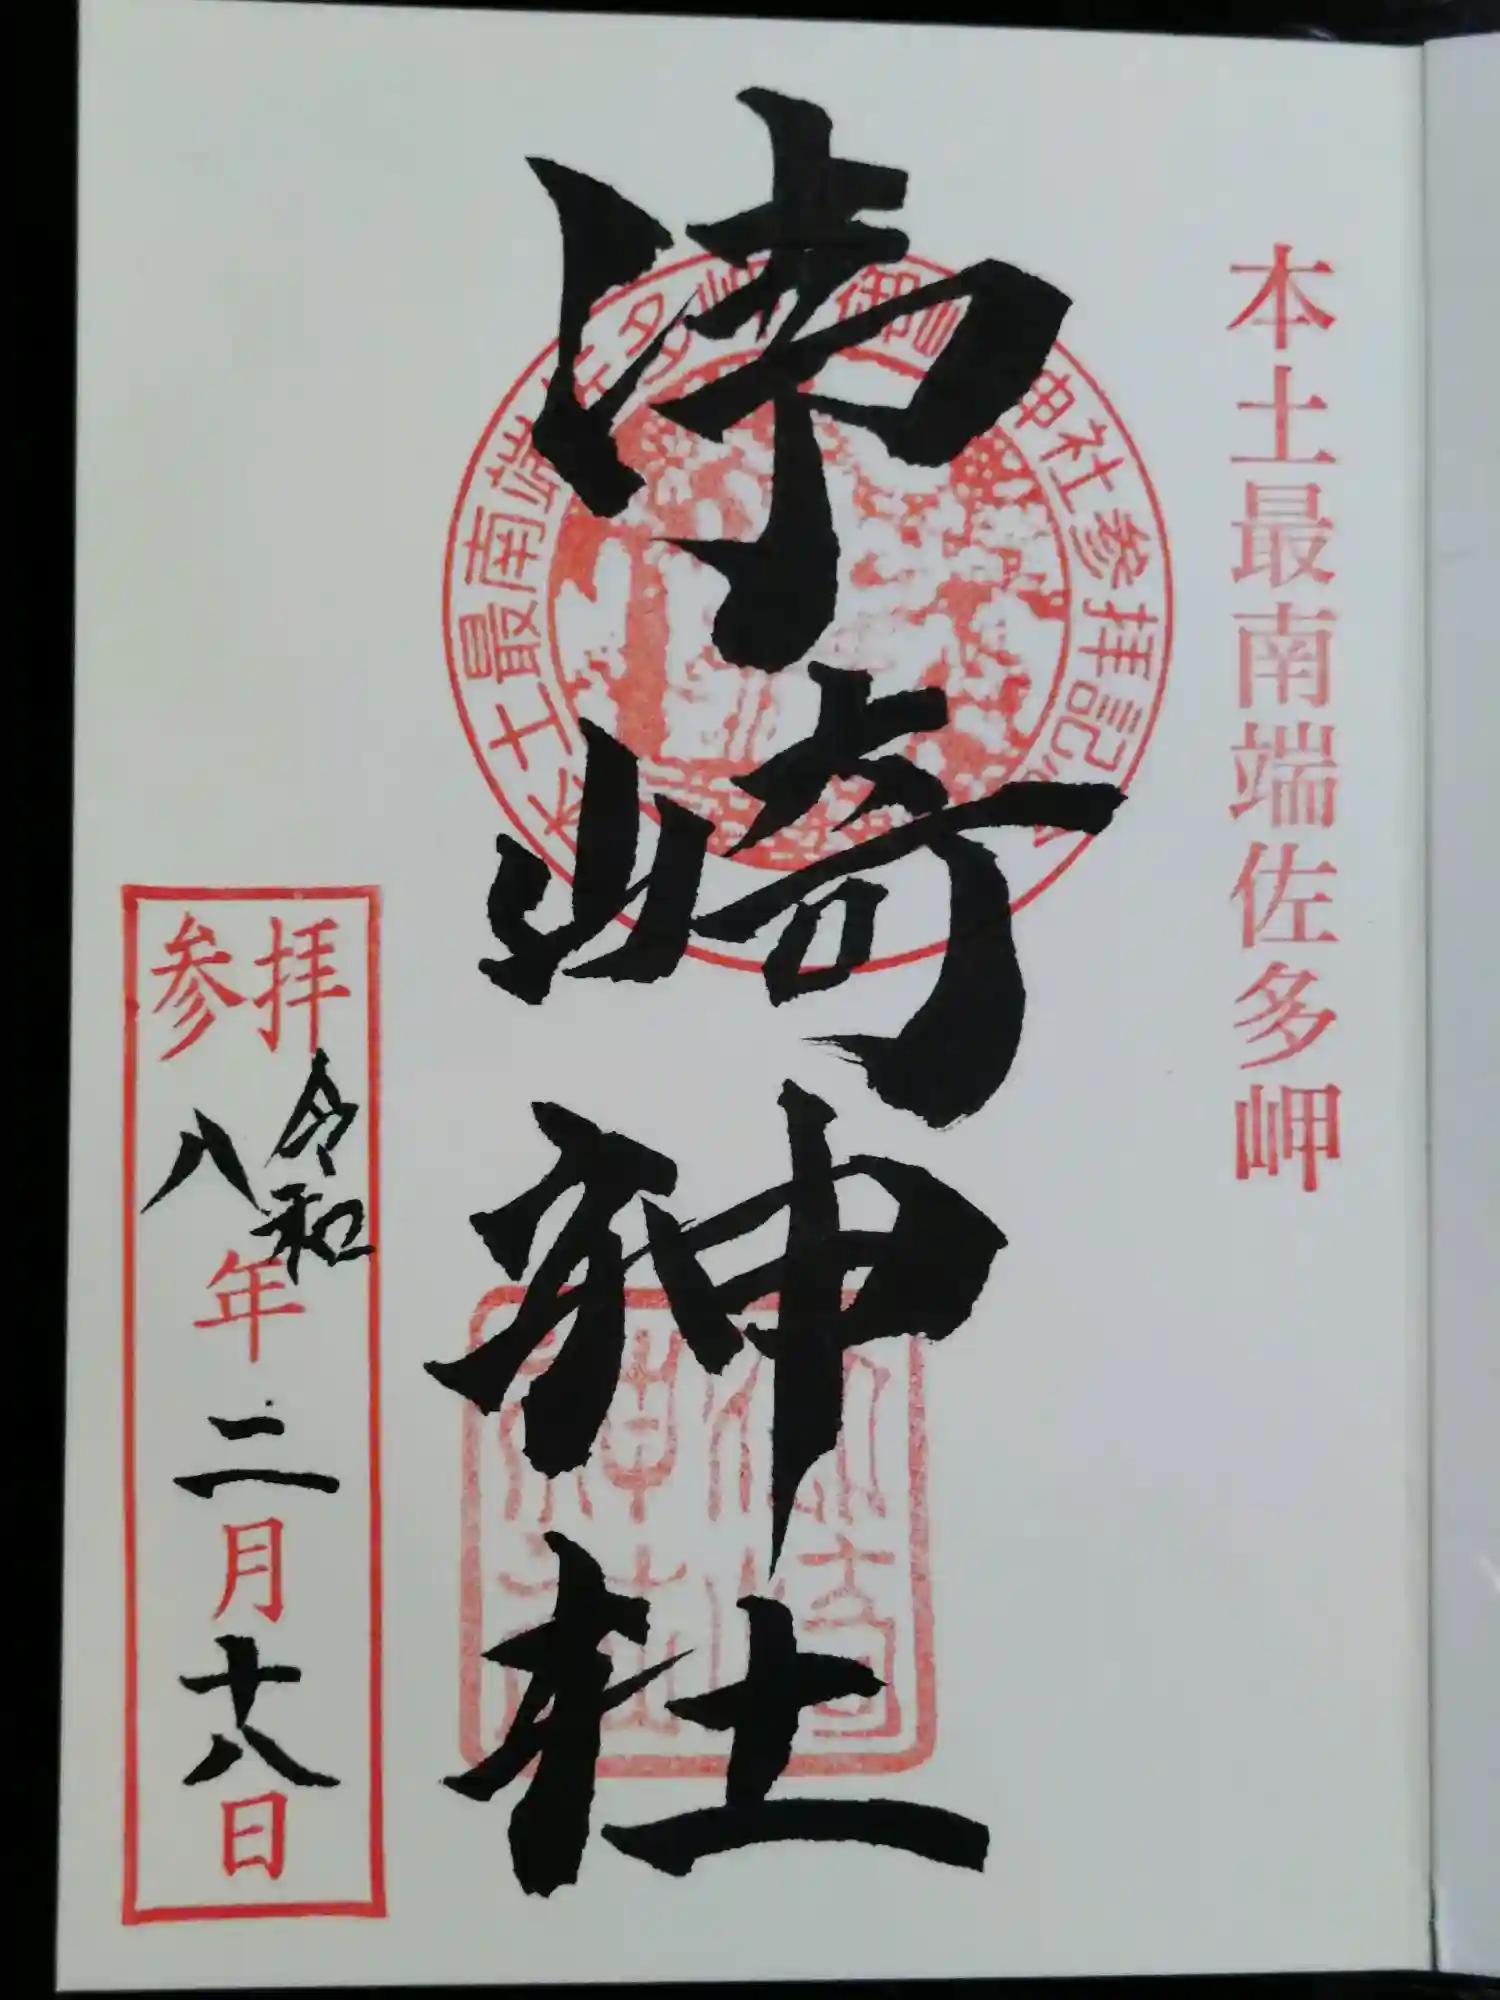 本土最南端佐多岬
本土最南端佐多岬 御崎神社参拝記念
御崎神社
御崎神社
参拝
令和
八年二月十八日